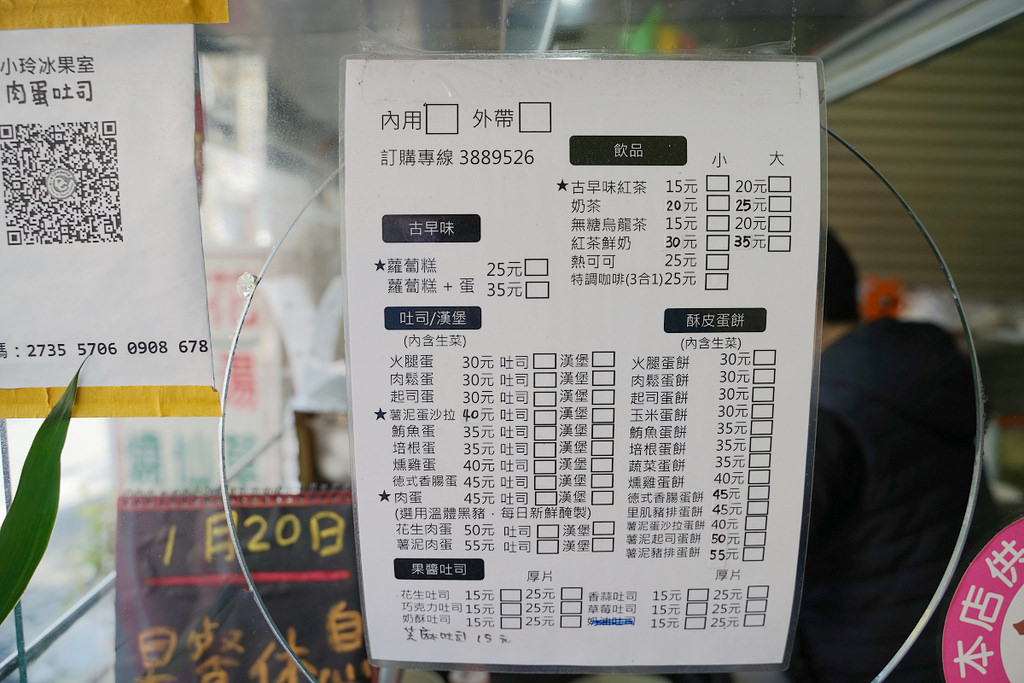 小玲冰果室
肉蛋吐司
: 2735 5706 0908 678
內用 外帶
訂購專線 3889526
飲品
小 大
★古早味紅茶 15元 20元
奶茶 20元 25元
無糖烏龍茶 15元 20元
紅茶鮮奶 30元 35元
熱可可 25元
特調咖啡(3合1) 25元
古早味
★蘿蔔糕 25元
蘿蔔糕 + 蛋 35元
吐司/漢堡
(內含生菜)
火腿蛋 30元 吐司 漢堡
肉鬆蛋 30元 吐司 漢堡
起司蛋 30元 吐司 漢堡
★薯泥蛋沙拉 40元 吐司 漢堡
鮪魚蛋 35元 吐司 漢堡
培根蛋 35元 吐司 漢堡
燻雞蛋 40元 吐司 漢堡
德式香腸蛋 45元 吐司 漢堡
★肉蛋 45元 吐司 漢堡
(選用溫體黑豬．每日新鮮醃製)
花生肉蛋 50元 吐司 漢堡
薯泥肉蛋 55元 吐司 漢堡
酥皮蛋餅
(內含生菜)
火腿蛋餅 30元
肉鬆蛋餅 30元
起司蛋餅 30元
玉米蛋餅 30元
鮪魚蛋餅 35元
培根蛋餅 35元
蔬菜蛋餅 35元
燻雞蛋餅 40元
德式香腸蛋餅 45元
里肌豬排蛋餅 45元
薯泥蛋沙拉蛋餅 40元
薯泥起司蛋餅 50元
薯泥豬排蛋餅 55元
果醬吐司
厚片 厚片
花生吐司 15元 25元 香蒜吐司 15元 25元
巧克力吐司 15元 25元 草莓吐司 15元 25元
奶酥吐司 15元 25元 奶油吐司 15元 25元
芝麻吐司 15元
1月20日
早餐休
自
本店供